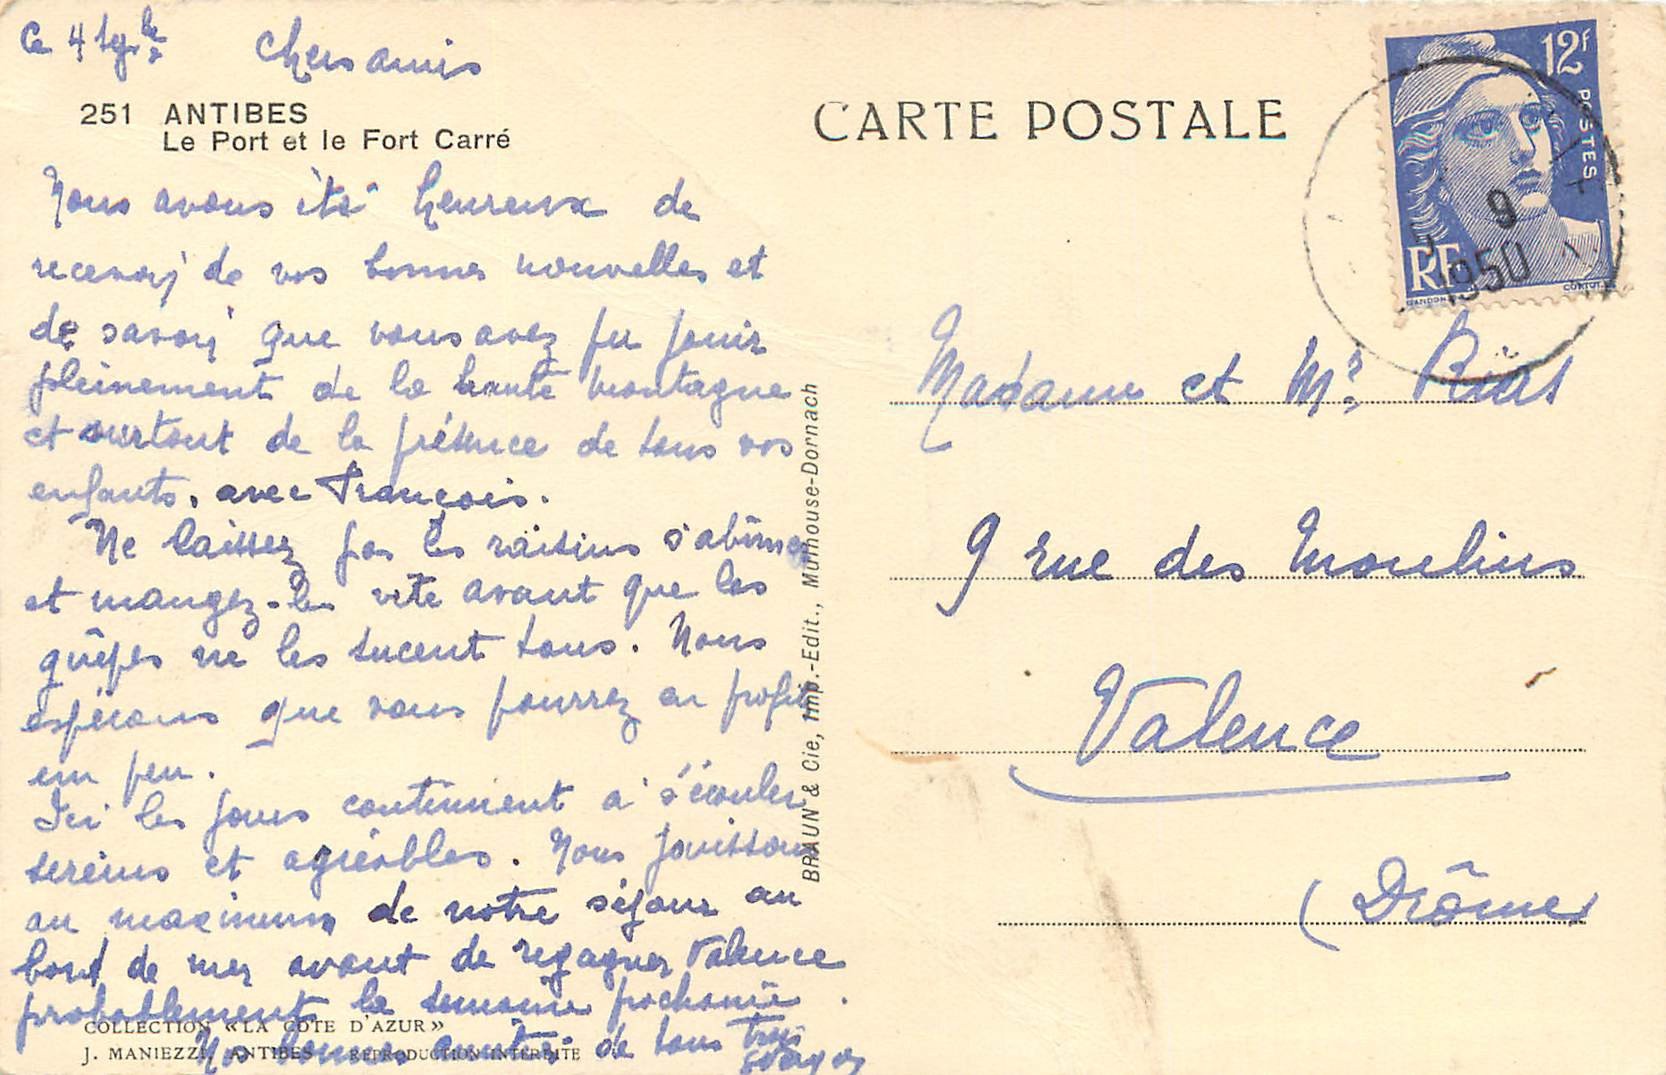 Ce 4 7bre
Chers amis
251 ANTIBES
Le Port et le Fort Carré
Nous avons été heureux de
recevoir de vos bonnes nouvelles et
de savoir que vous avez pu jouir
pleinement de la haute montagne
et surtout de la présence de tous vos
enfants, avec François.
Ne laissez pas les raisins s'abîmer
et mangez-les vite avant que les
guêpes ne les sucent tous. Nous
espérons que vous pourrez en profiter
un peu.
Ici les jours continuent à s'écouler
sereins et agréables. Nous jouissons
au maximum de notre séjour au
bord de mer avant de regagner Valence
probablement la semaine prochaine.
Nos bonnes amitiés de tous trois
COLLECTION «LA COTE D'AZUR»
J. MANIEZZI, ANTIBES REPRODUCTION INTERDITE
BRAUN & Cie, Imp.-Edit., Mulhouse-Dornach
CARTE POSTALE
12F
POSTES
RF
GANDON
CORTOT
9
1950
Madame et Mr
9 rue des Moulins
Valence
(Drôme)